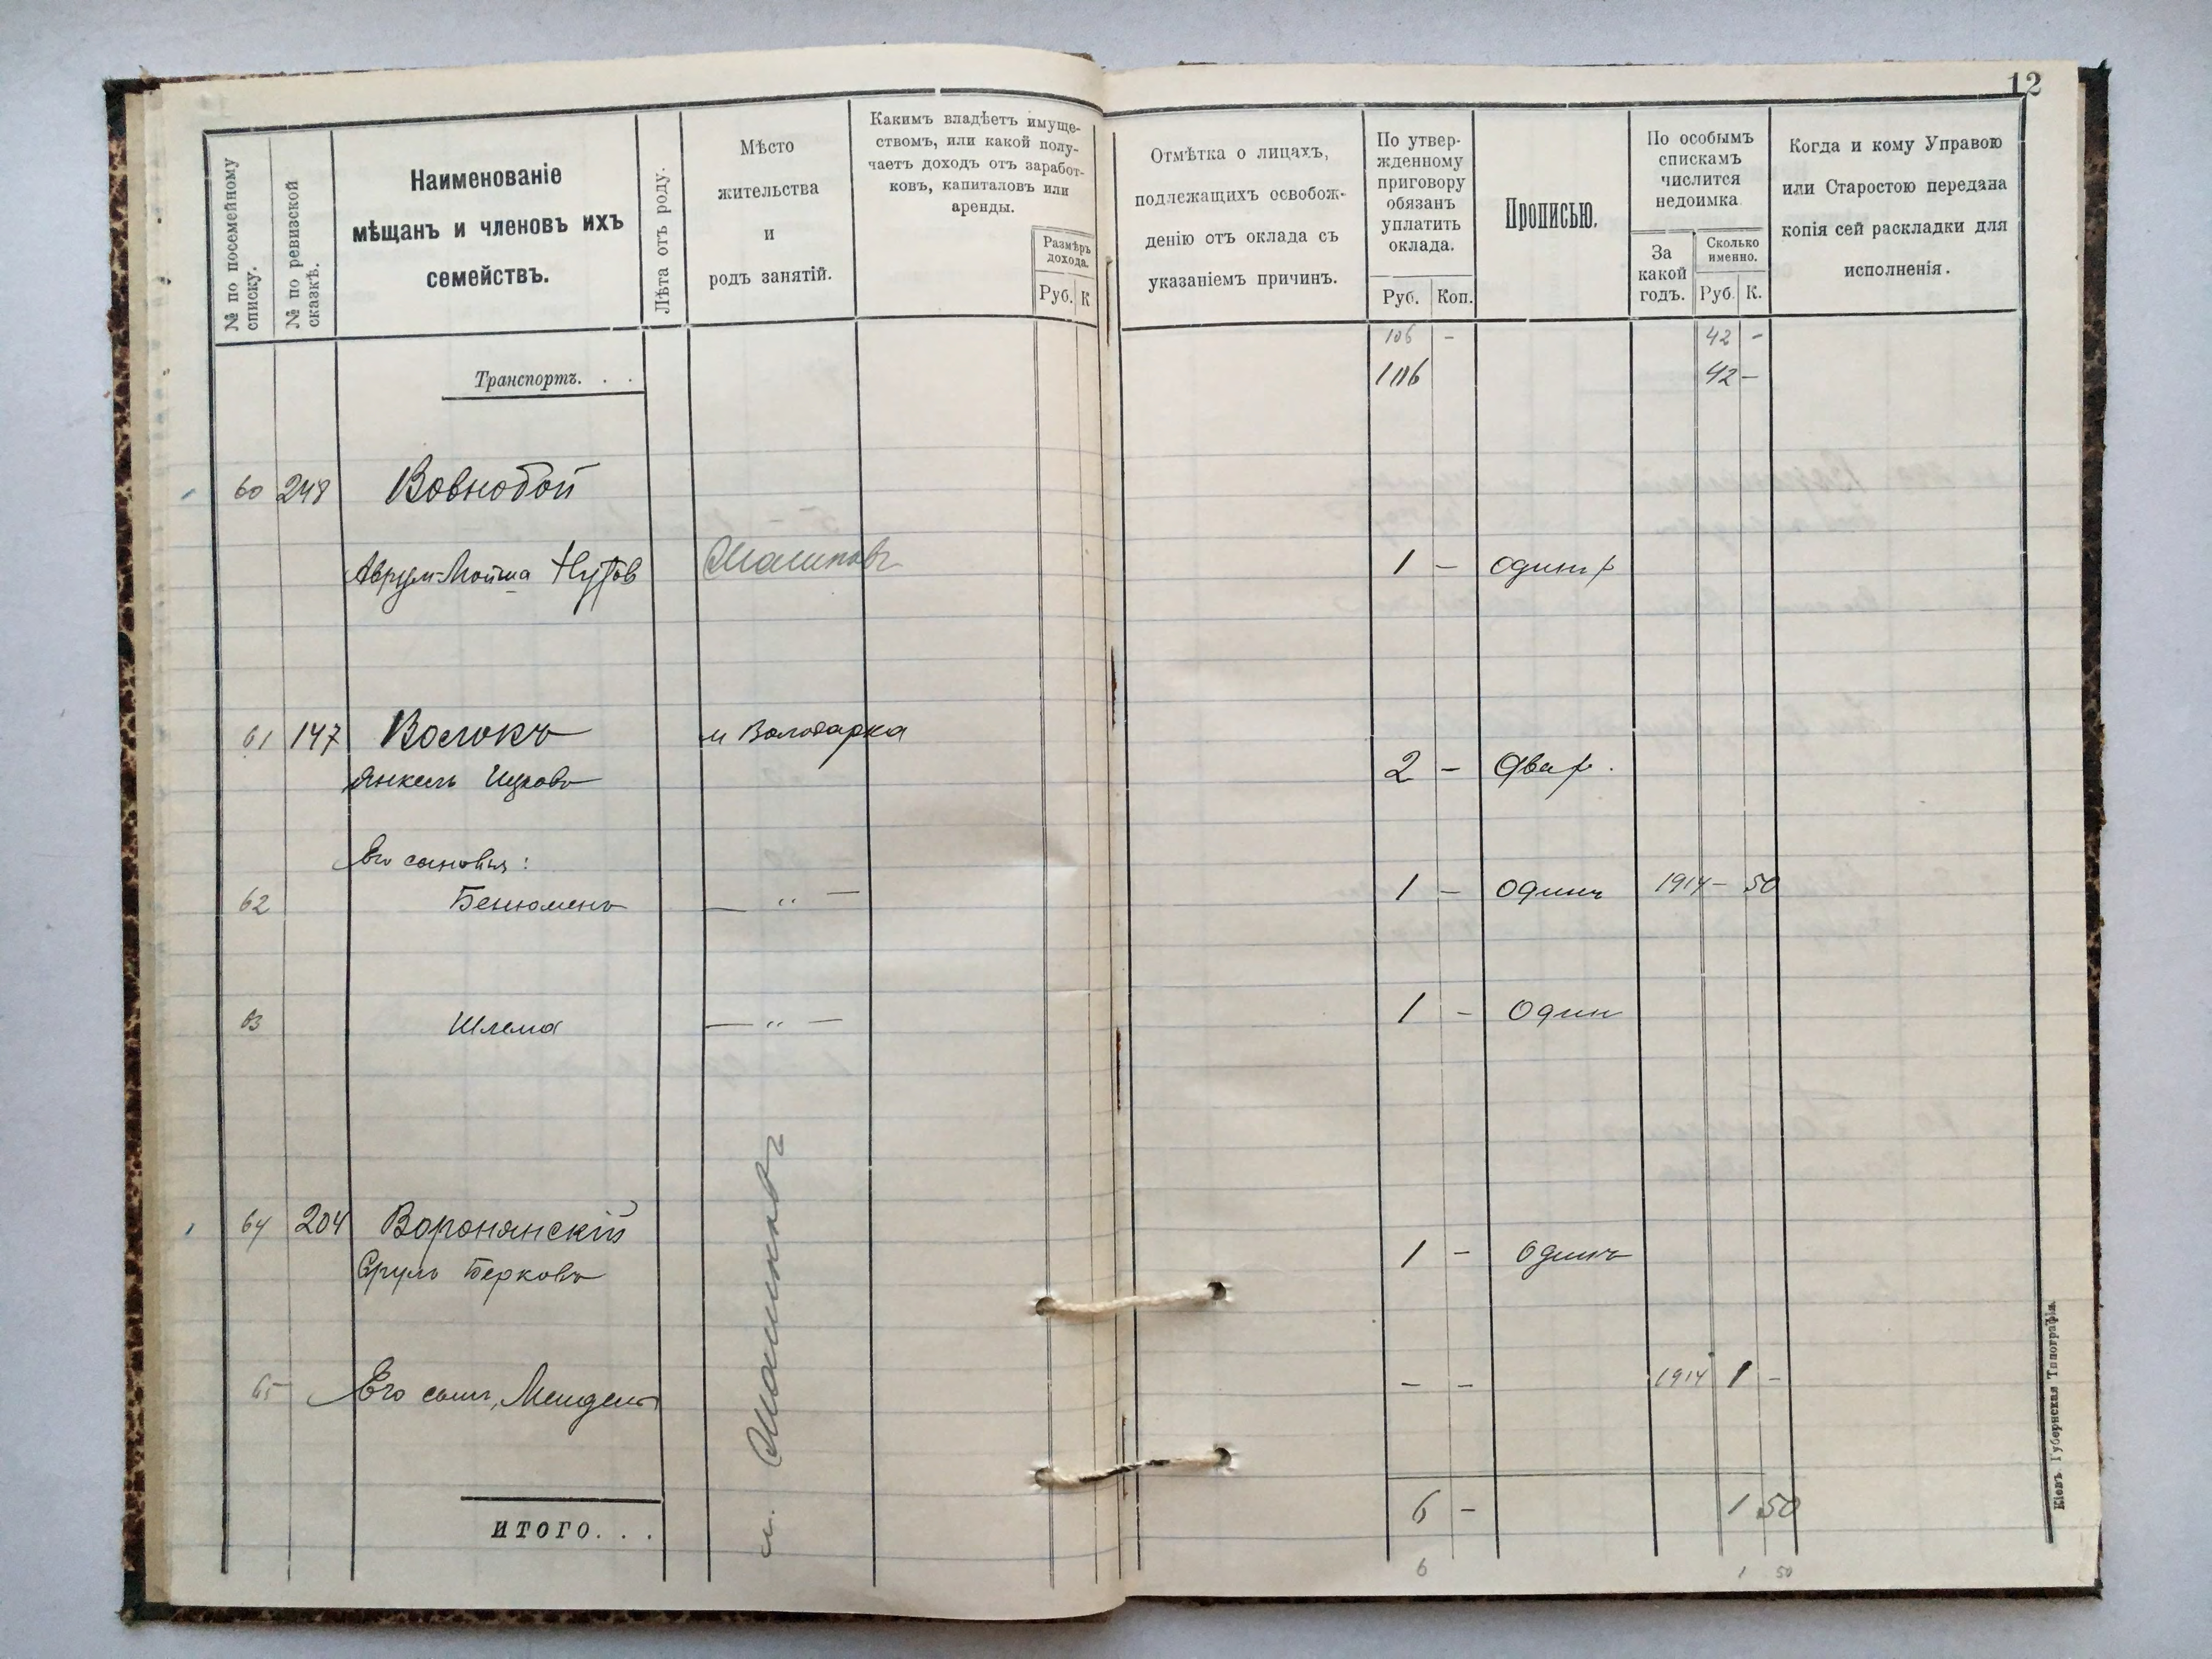 12
№ по посемейному списку.
№ по ревизской сказкѣ.
Наименованіе
мѣщанъ и членовъ ихъ
семействъ.
Лѣта отъ роду.
Мѣсто
жительства
и
родъ занятій.
Какимъ владѣетъ имуще-
ствомъ, или какой полу-
чаетъ доходъ отъ заработ-
ковъ, капиталовъ или
аренды.
Размѣръ
дохода.
Руб. К
Отмѣтка о лицахъ,
подлежащихъ освобож-
денію отъ оклада съ
указаніемъ причинъ.
По утвер-
жденному
приговору
обязанъ
уплатить
оклада.
Руб. Коп.
Прописью.
По особымъ
спискамъ
числится
недоимка
За
какой
годъ.
Сколько
именно.
Руб. К.
Когда и кому Управою
или Старостою передана
копія сей раскладки для
исполненія.
106 - 42 -
Транспортъ. . . 106 42 -
60 248 Вовнобой
Аврум-Мойша 1 - Один р
61 147 Волокъ м Володарка
Янкель Ицковъ 2 - Два р.
Его сыновья:
62 Бенюменъ — " — 1 - Одинъ 1914 - 50
63 Шлема — " — 1 - Один
64 204 Воронянскій
Сруль Берковъ 1 - Одинъ
65 Его сынъ, Мендель - - 1914 1 -
ИТОГО. . . 6 - 1 50
6 1 50
Кіевъ. Губернская Типографія.